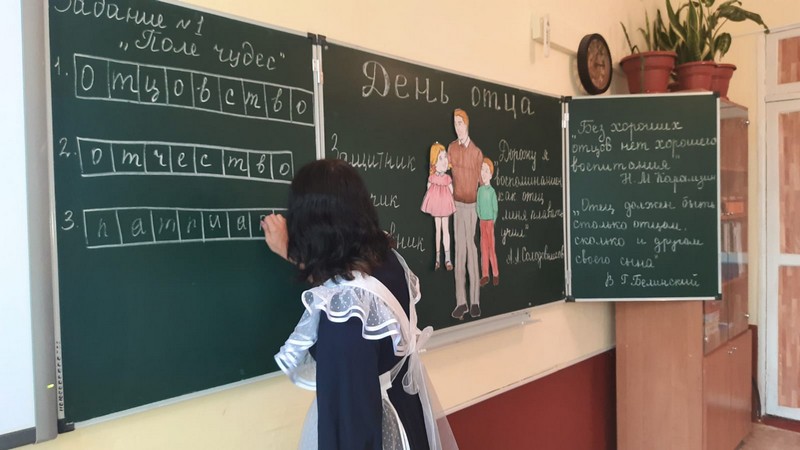 Задание №1
„Поле чудес"
1. отцовство
2. отчество
3. патриа
День отца
Защитник
„Дорожу я
воспоминанием,
как отец
меня плавать
учил"
„Без хороших
отцов нет хорошего
воспитания"
Н.М Карамзин
„Отец должен быть
столько отцом,
сколько и другом
своего сына"
В Г Белинский